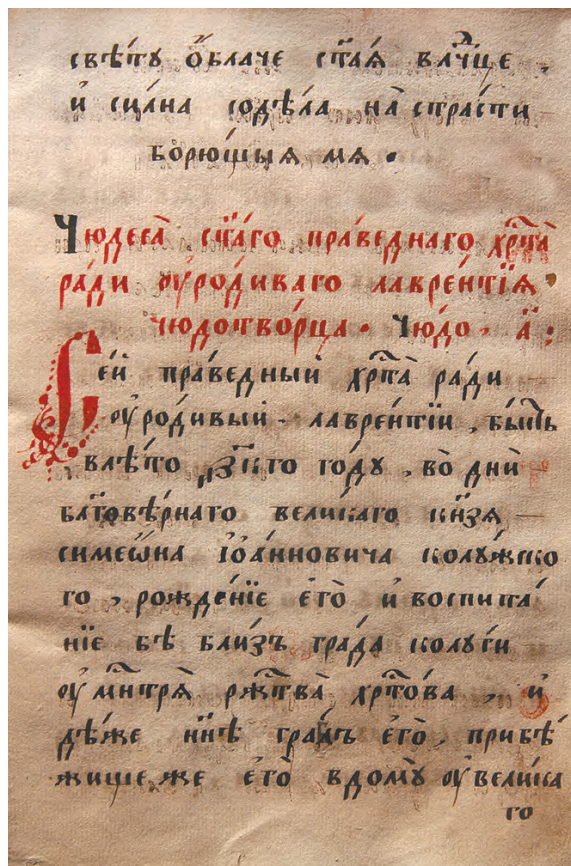 свѣ́тꙋ ѻ҆́блаче ст҃аѧ влⷣчце ,
и҆ силна содѣ́ла на̀ стра́сти
борю́щыѧ мѧ .
Чюдеса̀ ст҃а́го пра́веднаго хрⷭ҇та̀
ра́ди ᲂу҆ро́диваго лавре́нтїѧ
чюдотво́рца . Чю́до . а҃ :
Се́й пра́ведный хрⷭ҇та̀ ра́ди
ᲂу҆ро́дивый . лавре́нтїи , бы́сть
влѣ́то го́дꙋ , во̀ дни̑
бл҃говѣ́рнаго вели́каго кн҃зѧ
симеѡ́на і҆ѡа́нновича колꙋ́жско
го , рожде́нїе є҆го̀ и҆ воспита́
нїе бѣ̀ бли́зъ гра́да колꙋ́ги
ᲂу҆ рж҃тва̀ хрⷭ҇то́ва , и҆
дѣ́же нн҃ѣ є҆го̀ , прибѣ́
жище же є҆го̀ вдомꙋ̀ ᲂу҆ вели́ка
го